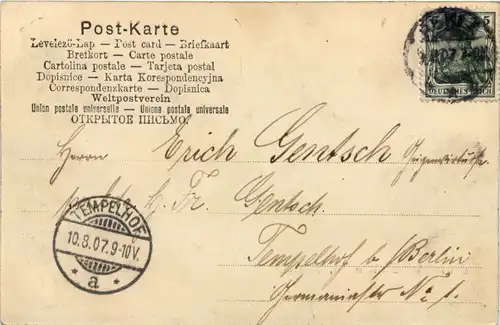 Post-Karte
Levelező-Lap — Post card — Briefkaart
Brefkort — Carte postale
Cartolina postale — Tarjeta postal
Dopisnice — Karta Korespondencyjna
Correspondenzkarte — Dopisnica
Weltpostverein
Union postale universelle — Unione postale universale
ОТКРЫТОЕ ПИСЬМО
5
DEUTSCHES REICH
Herrn Erich Gentsch
Fr. Gentsch.
Tempelhof b/Berlin
Germaniastr No 1.
TEMPELHOF
10.8.07.9-10V.
* a *